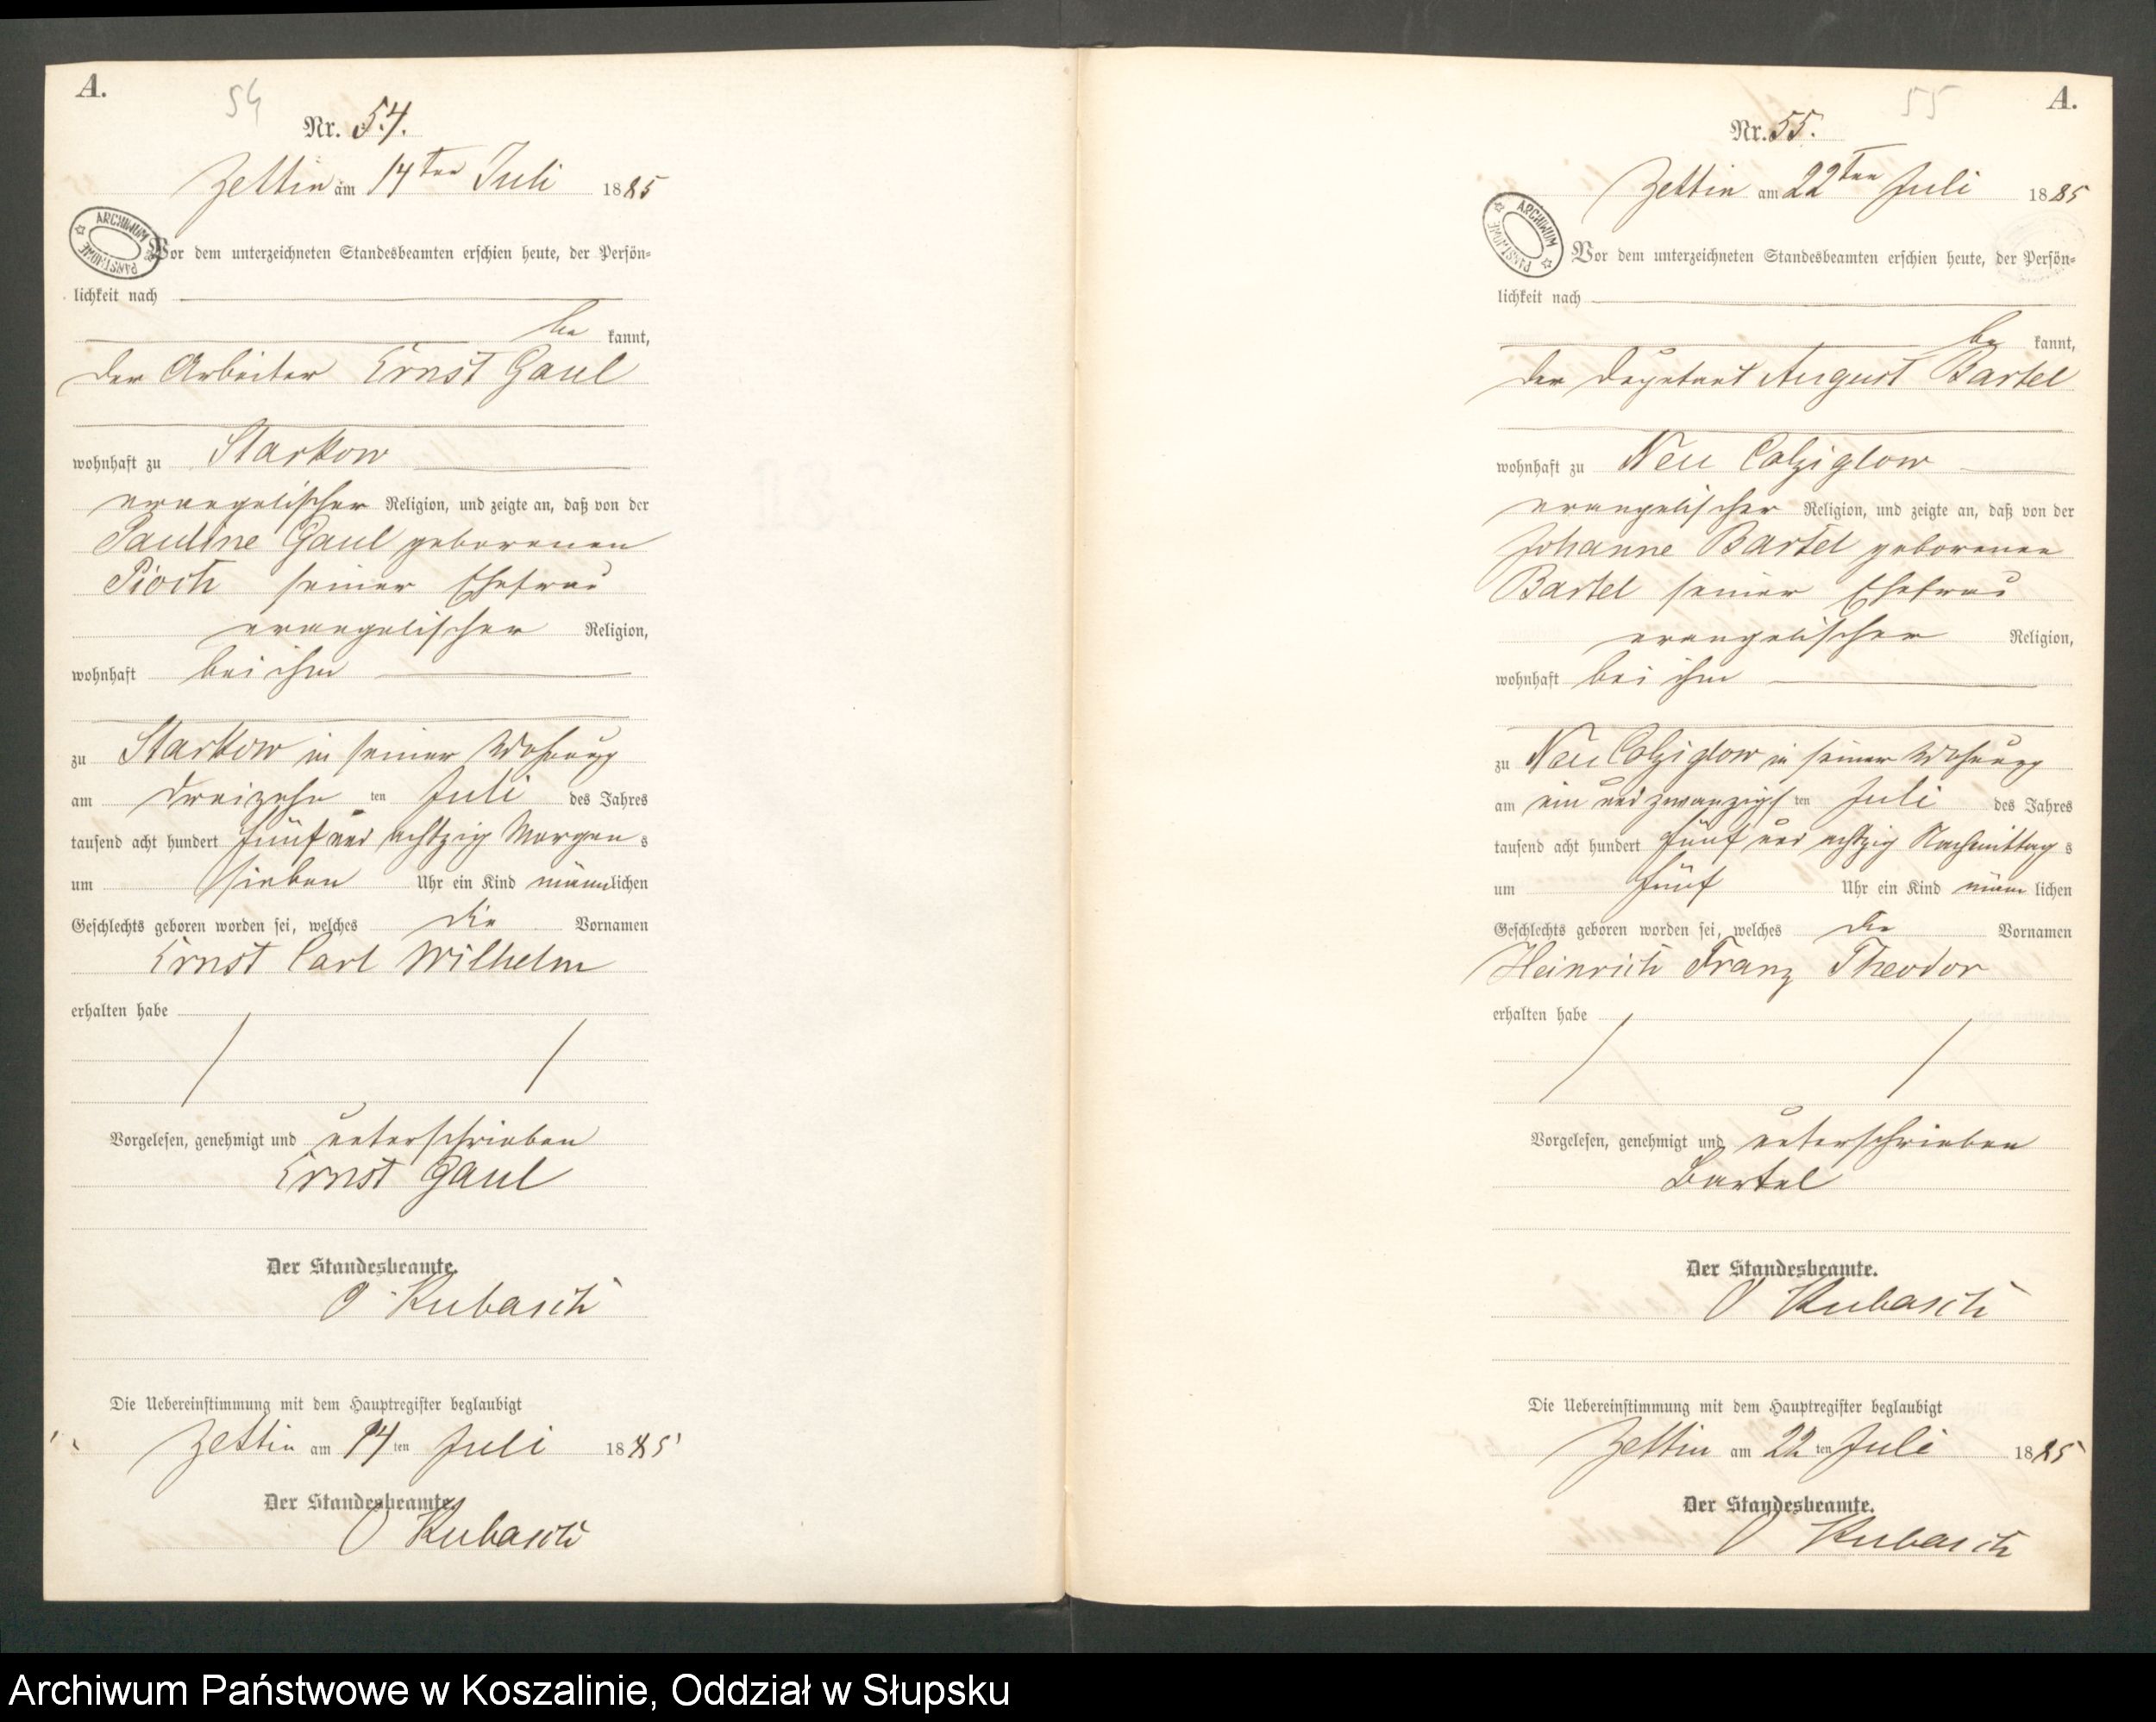 A.
54
Nr. 54.
Zettin am 14ten Juli 1885
ARCHIWUM PAŃSTWOWE
Vor dem unterzeichneten Standesbeamten erschien heute, der Persön-
lichkeit nach
be kannt,
der Arbeiter Ernst Gaul
wohnhaft zu Starkow
evangelischer Religion, und zeigte an, daß von der
Pauline Gaul geborenen
Pioch seiner Ehefrau
evangelischer Religion,
wohnhaft bei ihm
zu Starkow in seiner Wohnung
am dreizehn ten Juli des Jahres
tausend acht hundert fünf und achtzig Morgen s
um sieben Uhr ein Kind männlichen
Geschlechts geboren worden sei, welches die Vornamen
Ernst Carl Wilhelm
erhalten habe
Vorgelesen, genehmigt und unterschrieben
Ernst Gaul
Der Standesbeamte.
O Kubasch
Die Uebereinstimmung mit dem Hauptregister beglaubigt
Zettin am 14 ten Juli 1885
Der Standesbeamte.
O Kubasch
55
A.
Nr. 55.
Zettin am 22ten Juli 1885
ARCHIWUM PAŃSTWOWE
Vor dem unterzeichneten Standesbeamten erschien heute, der Persön-
lichkeit nach
be kannt,
der Deputant August Bartel
wohnhaft zu Neu Colziglow
evangelischer Religion, und zeigte an, daß von der
Johanne Bartel geborenen
Bartel seiner Ehefrau
evangelischer Religion,
wohnhaft bei ihm
zu Neu Colziglow in seiner Wohnung
am ein und zwanzigs ten Juli des Jahres
tausend acht hundert fünf und achtzig Nachmittag s
um fünf Uhr ein Kind männ lichen
Geschlechts geboren worden sei, welches die Vornamen
Heinrich Franz Theodor
erhalten habe
Vorgelesen, genehmigt und unterschrieben
Bartel
Der Standesbeamte.
O Kubasch
Die Uebereinstimmung mit dem Hauptregister beglaubigt
Zettin am 22 ten Juli 1885
Der Standesbeamte.
O Kubasch
Archiwum Państwowe w Koszalinie, Oddział w Słupsku